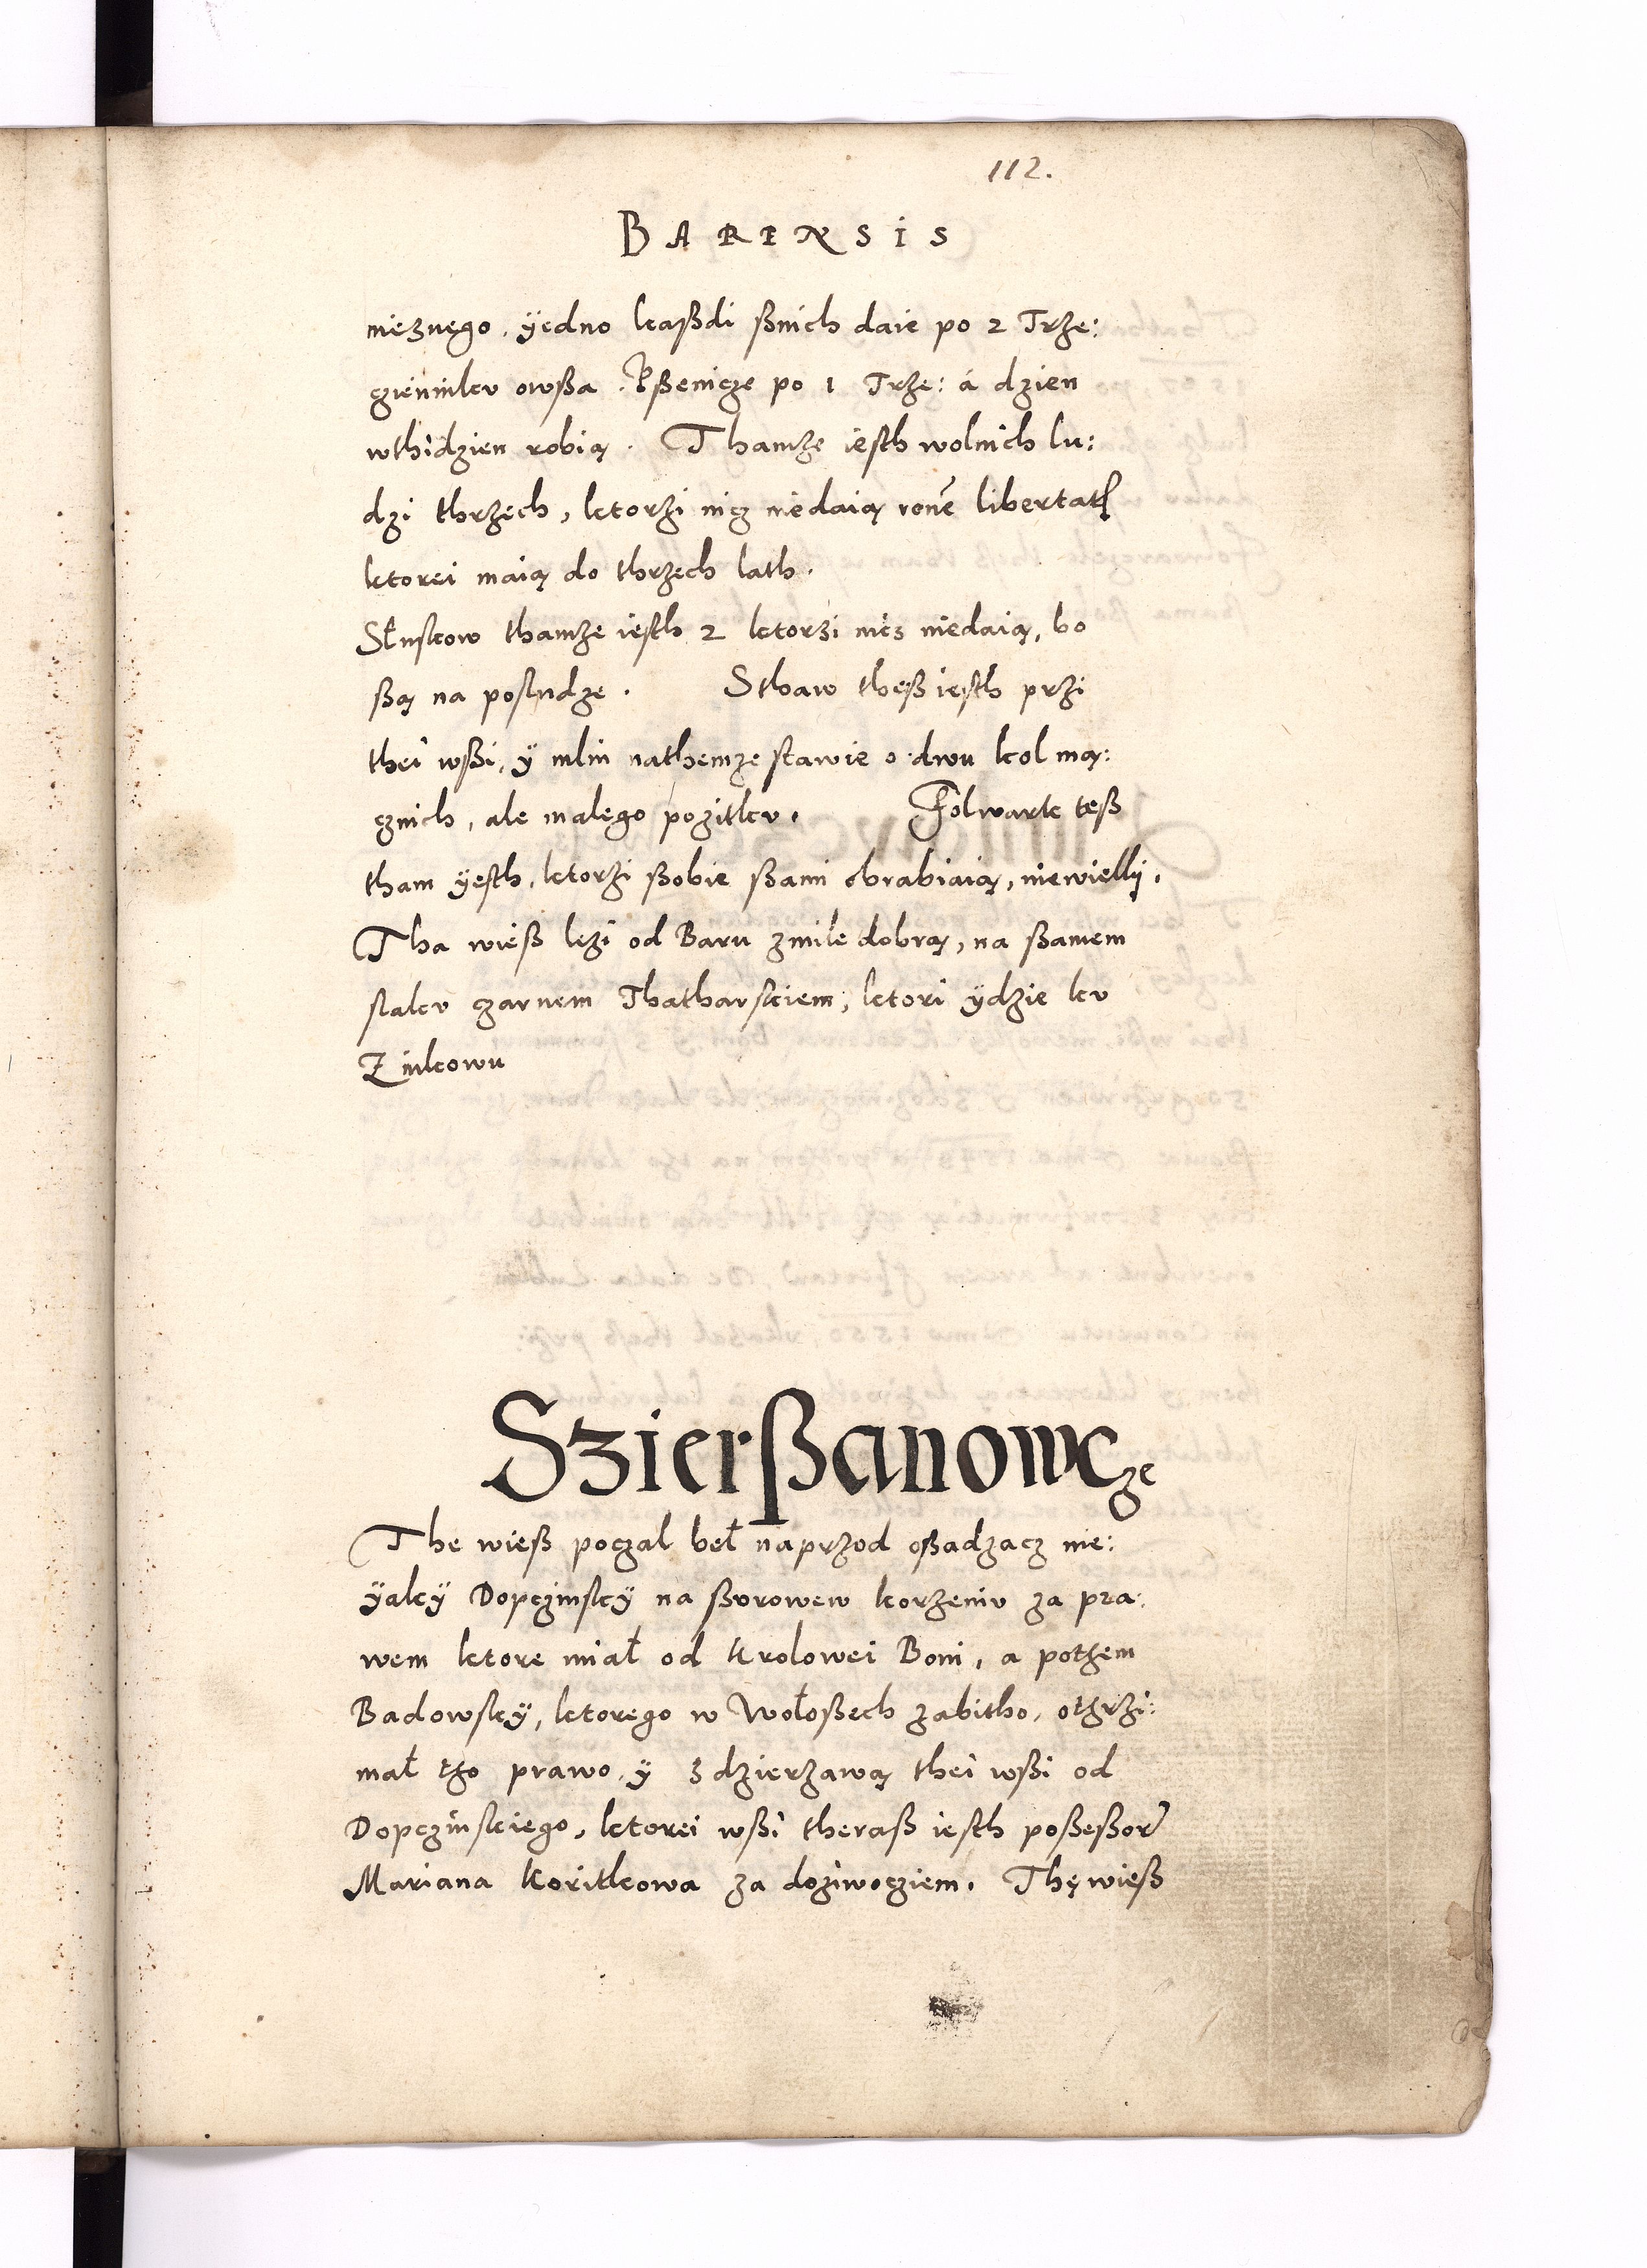 112.
BARENSIS
nieznego, ÿedno kaßdi ßnich daie po 2 Trże:
cziennikv owßa. Pßenicze po 1 Trże: á dzien
wthidzien robią. Thamże iesth wolnich lu:
dzi thrzech, ktorżi nicz niedaią rone libertat
ktorei maią do thrzech lath.
Słuskow thamże iesth 2 ktorzi nics niedaią, bo
ßą na posludze. Sthaw theß iesth przi
thei wßi, ÿ mlin nathemże stawie o dwu kol mą:
cznich, ale malego pozitkv. Folwark teß
tham ÿesth, ktorżi ßobie ßami obrabiaią, niewielkÿ.
Tha wieß lezi od Baru zmile dobrą, na ßamem
slakv czarnem Thatharskiem, ktori ÿdzie kv
Zinkowu
Szierßanowcze
The wieß poczal beł naprzod oßadzacz nie:
ÿakÿ Dopczinskÿ na ßvrowew korzeniv za pra:
wem ktore miał od Krolowei Boni, a potżem
Badowskÿ, ktorego w Wołoßech zabitho, otżrżi:
mał tżo prawo, ÿ zdzierżawą thei wßi od
Dopczinskiego, ktorei wßi theraß iesth poßeßor
Mariana Koritkowa za dożiwocziem. Thę wieß